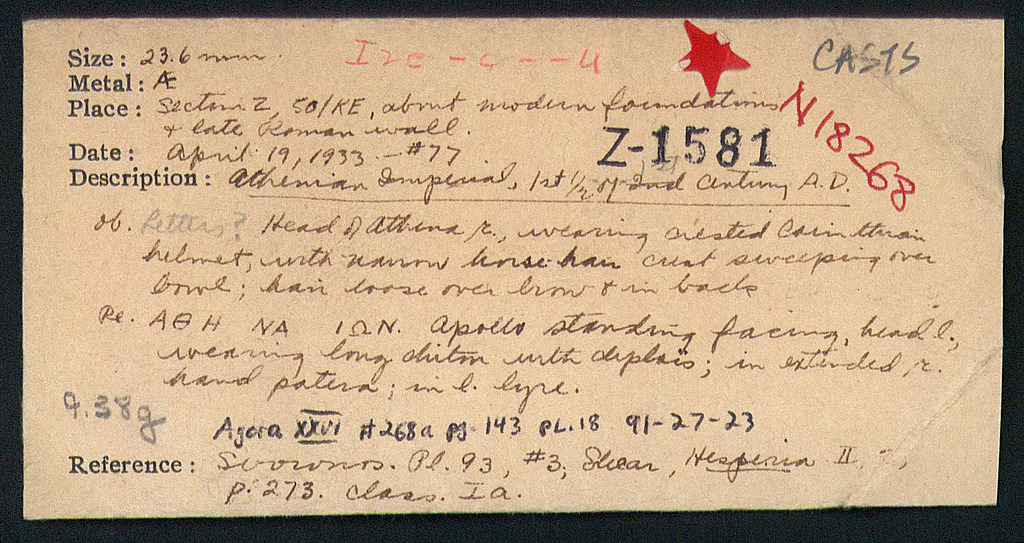 Size : 23.6 mm.
CASTS
Metal : Æ
Place : Section Z, 50/KE, about modern foundations
+ late Roman wall.
N18268
Z-1581
Date : April 19, 1933 - #77
Description : Athenian Imperial, 1st 1/2 of 2nd Century A.D.
ob. Letters? Head of Athena r., wearing crested Corinthian
helmet, with narrow horse hair crest sweeping over
bowl; hair loose over brow & in back
Re. ΑΘΗ ΝΑ ΙΩΝ. Apollo standing facing, head l.,
wearing long chiton with diplois; in extended r.
hand patera; in l. lyre.
9.38g
Agora XXVI #268a pg. 143 PL.18 91-27-23
Reference : Svoronos. Pl. 93, #3, Shear, Hesperia II,
p. 273. Class. Ia.